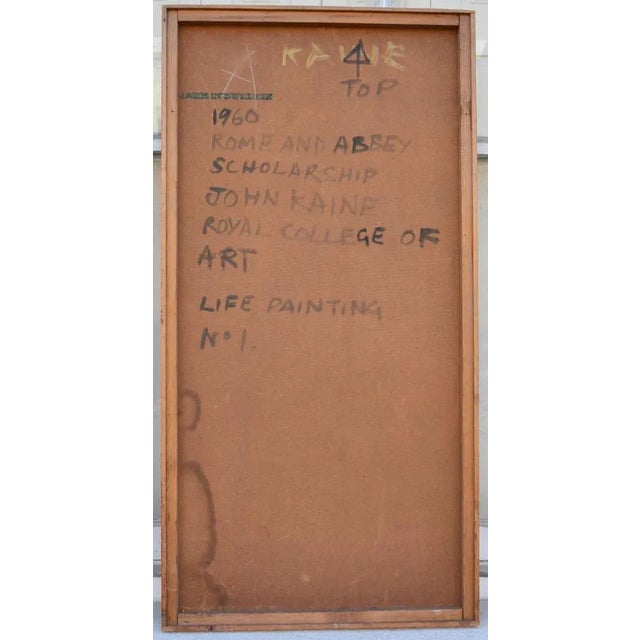 KAINE
TOP
1960
ROME AND ABBEY
SCHOLARSHIP
JOHN KAINE
ROYAL COLLEGE OF
ART
LIFE PAINTING
No 1.